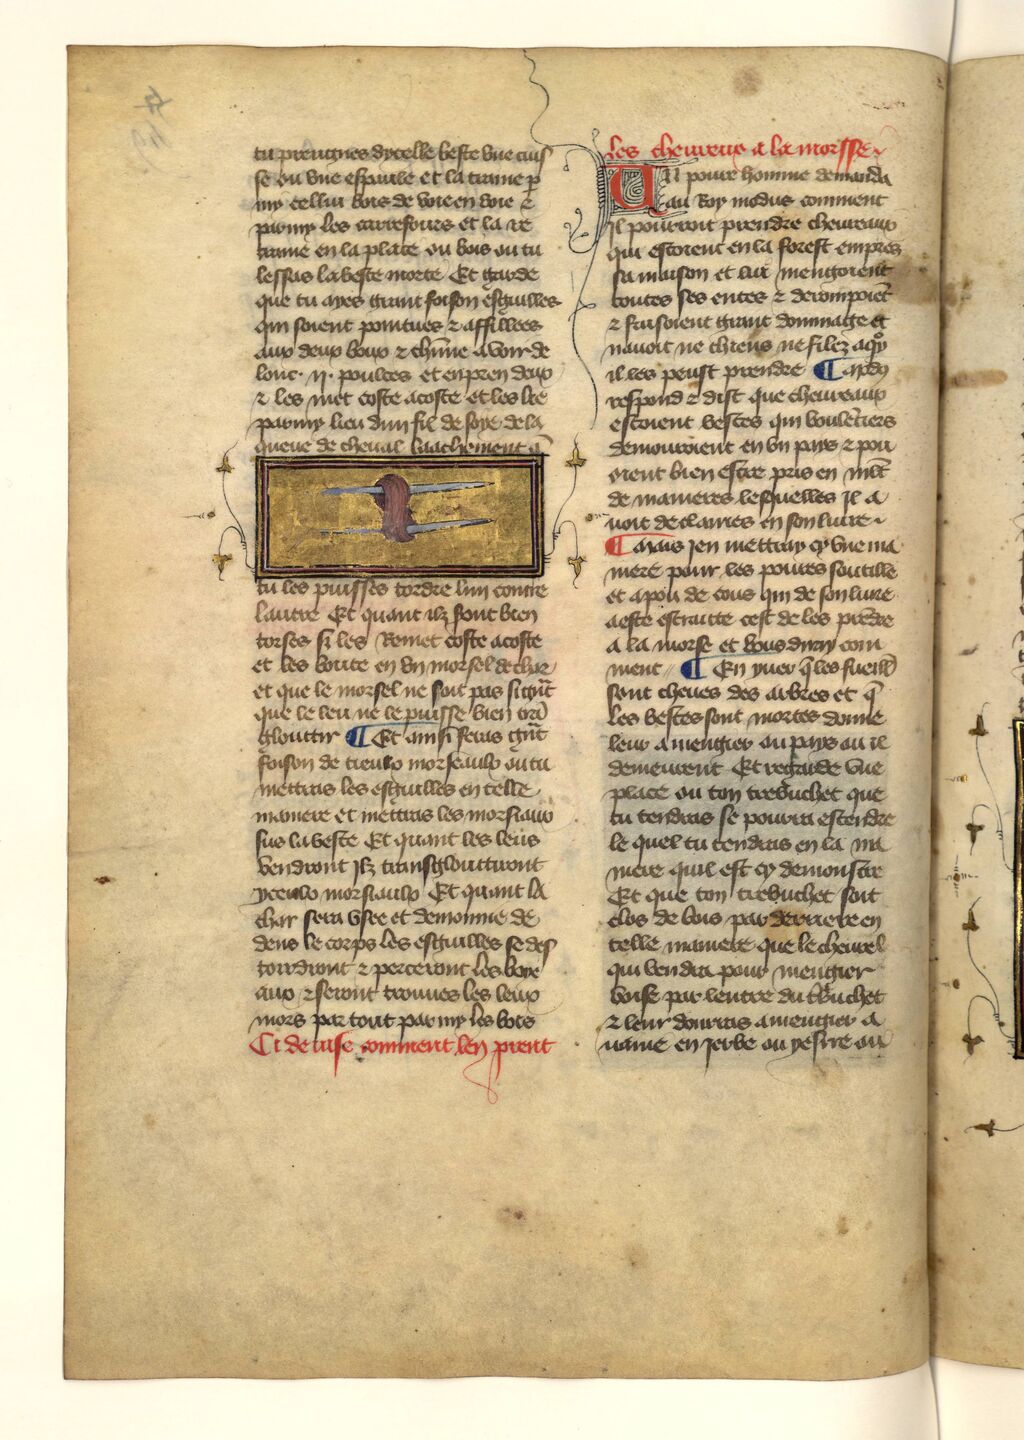 tu prengnes dycelle beste vne cuis
se ou vne espaule et la traine p
my cellui bois de voie en voie ⁊
parmy les carrefours et la re
traine en la place ou bois ou tu
lessas la beste morte Et garde
que tu ayes grant foison esguilles
qui soient pointues ⁊ affillees
aux deux boux ⁊ chũne a voir de
lonc · ij · poulces et en pren deux
⁊ les met coste acoste et les lie
parmy lieu dun fil de soye de la
queue de cheual laachement q̃
tu les puisses tordre lun contre
lautre Et quant ilz sont bien
torses si les Remet coste acoste
et les boute en vn morsel de char
et que le morsel ne soit pas si grãt
que le leu ne le puisse bien trã
glouttir ¶ Et ainsi feras grãt
foison de tieulx morseaulx ou tu
mettras les esguilles en telle
maniere et mettras les morsiaux
sus la beste Et quant les leus
vendront ilz transglouttiront
yceulx morsiaulx Et quant la
char sera vsee et demonnie de
dens le corps les esguilles se des
tordront ⁊ perceront les boye
aux ⁊ seront trouues les leux
mors par tout parmy les bois
Ci deuise comment len prent
les cheureux a la morsse
Un poure homme demanda
au Roy modus comment
il pourroit prendre cheureaux
qui estoient en la forest empres
sa maison et lui mengoient
toutes ses entes ⁊ derompoiẽt
⁊ faisoient grant dommage et
nauoit ne chiens ne filez a quoy
il les peust prendre ¶ Modus
respond ⁊ dist que cheureaux
estoient bestes qui voulẽtiers
demouroient en vn pays ⁊ pou
oient bien estre pris en mlt̃
de manieres lesquelles il a
uoit declairies en son liure
¶ Mais ien mettray cy vne ma
niere pour les poures soutille
et a pou de cous qui de son liure
a este estraitte cest de les prẽdre
a la morse et vous diray com
ment ¶ En yuer q̃ les fueill̃
sont cheues des arbres et q̃
les bestes sont mortes donne
leur a mengier ou pays ou il
demeurent Et regarde vne
place ou ton trebuchet que
tu tendras se pourra estendre
le quel tu tendras en la ma
niere quil est cy demonstre
Et que ton trebuchet soit
clos de bois par derriere en
telle maniere que le cheurel
qui vendra pour mengier
voise par lentre du t̃buchet
⁊ leur donras a mengier a
uaine en ierbe ou yesire ou